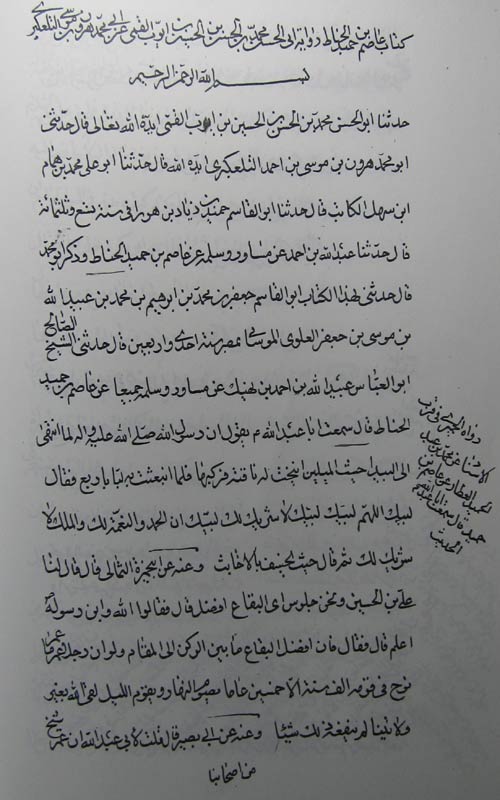 كتاب عاصم بن حميد الحناط رواية ابى الحسن محمد بن الحسن بن الحسين بن ايوب القمى عن ابى محمد هرون بن موسى التلعكبرى
بسم الله الرحمن الرحيم
حدثنا ابو الحسن محمد بن الحسن بن الحسين بن ايوب القمى ايده الله تعالى قال حدثنى
ابو محمد هرون بن موسى بن احمد التلعكبرى ايده الله قال حدثنا ابو على محمد بن همام
ابن سهل الكاتب قال حدثنا ابو القاسم حميد بن زياد بن هوارا فى سنة تسع وثلثمائة
قال حدثنا عبد الله بن احمد عن مساور وسلمة عن عاصم بن حميد الحناط وذكر ابو محمد
قال حدثنى بهذا الكتاب ابو القاسم جعفر بن محمد بن ابرهيم بن محمد بن عبيد الله
بن موسى بن جعفر العلوى الموسائى بمصر سنة احدى واربعين قال حدثنى الشيخ الصالح
ابو العباس عبيد الله بن احمد بن نهيك عن مساور وسلمة جميعا عن عاصم بن حميد
الحناط قال سمعت ابا عبد الله ع يقول ان رسول الله صلى الله عليه واله لما انتهى
الى البيداء حيث الميلين انيخت له ناقته فركبها فلما انبعثت به لبا باربع فقال
لبيك اللهم لبيك لبيك لا شريك لك لبيك ان الحمد والنعمة لك والملك لا
شريك لك ثم قال حيث يخسف بالاخابث وعنه عن ابى حمزة الثمالى قال قال لنا
على بن الحسين ونحن جلوس اى البقاع افضل قال فقالوا الله وابن رسوله
اعلم قال فقال فان افضل البقاع ما بين الركن الى المقام ولو ان رجلا عمر ما عمر
نوح فى قومه الف سنة الا خمسين عاما يصوم النهار ويقوم الليل لقى الله بغير
ولايتنا لم ينفعه ذلك شيئا وعنه عن ابى بصير قال قلت لابى عبد الله ان شيخ
من اصحابنا
رواه الحميرى فى قرب
الاسناد عن محمد بن عبد
الحميد العطار عن عاصم بن
حميد قال سمعت ابا عبد الله
الحديث